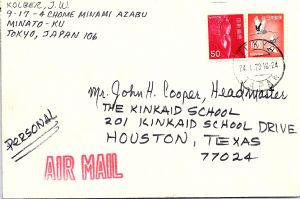 KOLBER, J.W.
9-17-4 CHOME MINAMI AZABU
MINATO-KU
TOKYO, JAPAN 106
50
24.1.79 16-24
Mr. John H. Cooper, Headmaster
THE KINKAID SCHOOL
201 KINKAID SCHOOL DRIVE
HOUSTON, TEXAS
77024
PERSONAL
AIR MAIL